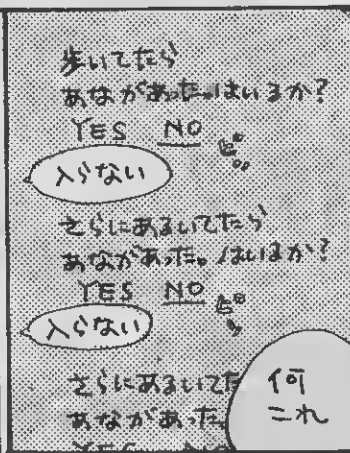 歩いてたら
あながあった。はいるか?
YES NO ピッ
入らない
さらにあるいてたら
あながあった。はいるか?
YES NO ピッ
入らない
さらにあるいてた
あながあった
YES NO
何
これ